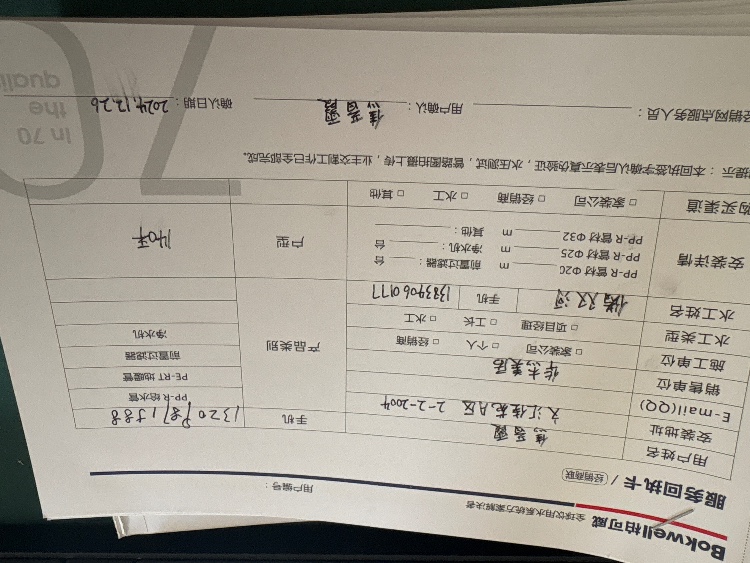 Bokwell柏可威 全球饮用水系统方案解决者
服务回执卡 / 经销商联 用户编号：
用户姓名 焦香霞 手机
安装地址 文汇佳苑A区 2-2-2004
E-mail(QQ)
销售单位 华杰美居
施工单位 □ 家装公司 □ 个人 □ 经销商
水工类型 □ 项目经理 □ 工长 □ 水工
水工姓名 手机 13839060177
产品类别
PP-R 给水管
PE-RT 地暖管
前置过滤器
净水机
安装详情
PP-R 管材 Φ20 m 前置过滤器： 台
PP-R 管材 Φ25 m 净水机： 台
PP-R 管材 Φ32 m 其他：
户型 140平
购买渠道 □ 家装公司 □ 经销商 □ 水工 □ 其他
提示：本回执签字确认后表示真伪验证，水压测试，管路图拍摄上传，业主交割工作已全部完成。
经销网点服务人员： 用户确认：焦香霞 确认日期：2024.12.26
70
in 70
the
quali